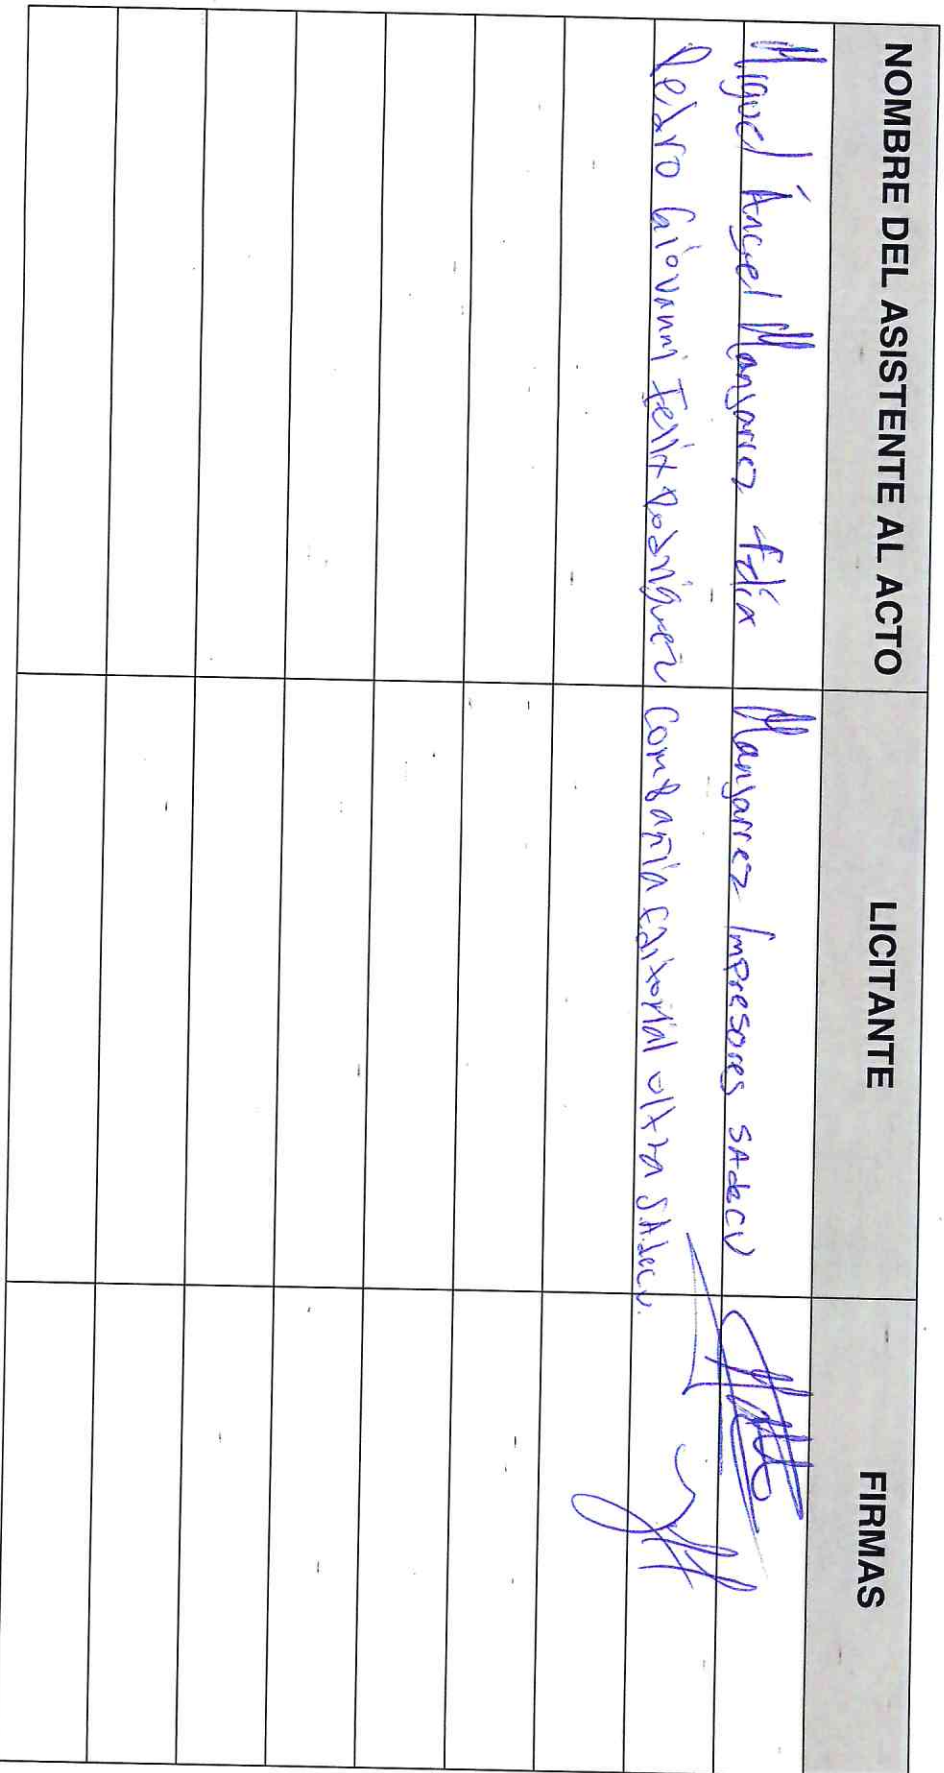 NOMBRE DEL ASISTENTE AL ACTO LICITANTE FIRMAS
Miguel Ángel Manjarrez Félix Manjarrez Impresores SA de CV
Pedro Giovanni Felix Rodriguez Compañia Editorial Ultra S.A. de C.V.